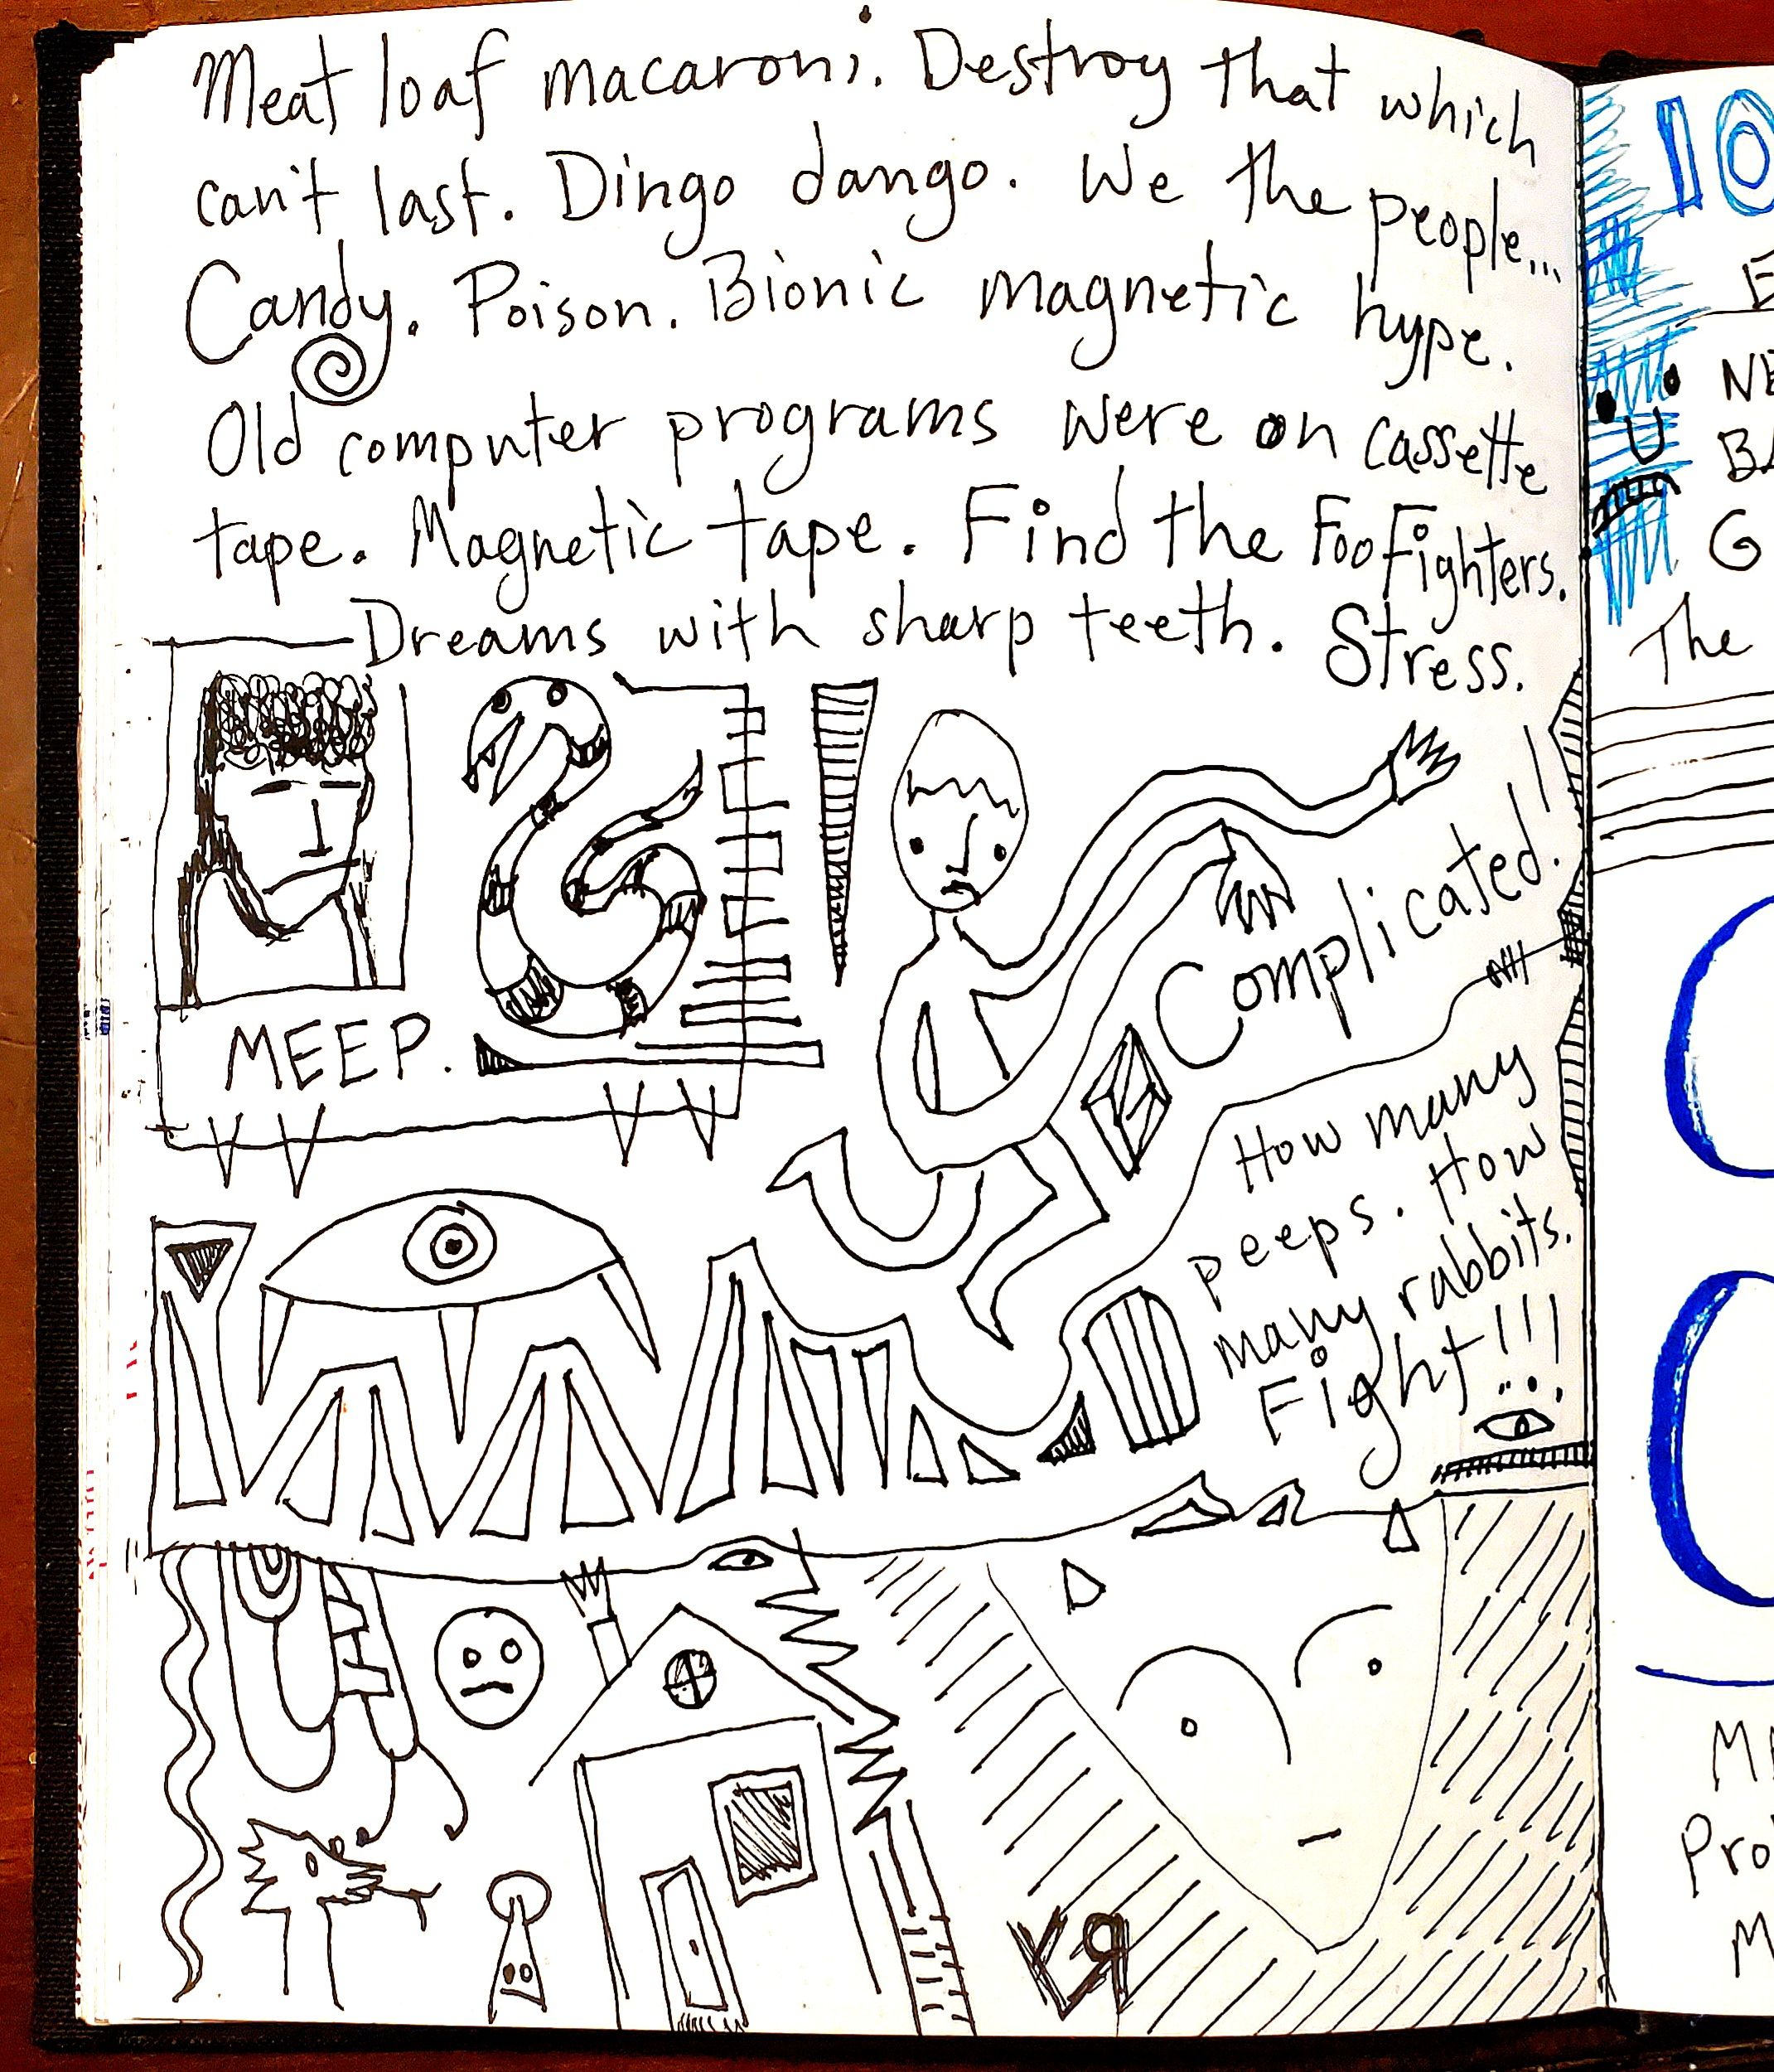 Meat loaf macaroni. Destroy that which
can't last. Dingo dango. We the people...
Candy. Poison. Bionic magnetic hype.
Old computer programs were on cassette
tape. Magnetic tape. Find the Foo Fighters.
Dreams with sharp teeth. Stress.
MEEP.
Complicated!
How many
peeps. How
many rabbits.
Fight!!!
10
E
NE
BA
G
The
Pro
M